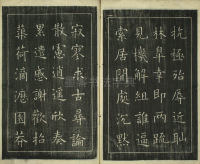 抗極殆辱近恥
林皋幸即兩疏
見機解組誰逼
索居閒處沉默
寂寥求古尋論
散慮逍遙欣奏
累遣慼謝歡招
蕖荷滴瀝園莽